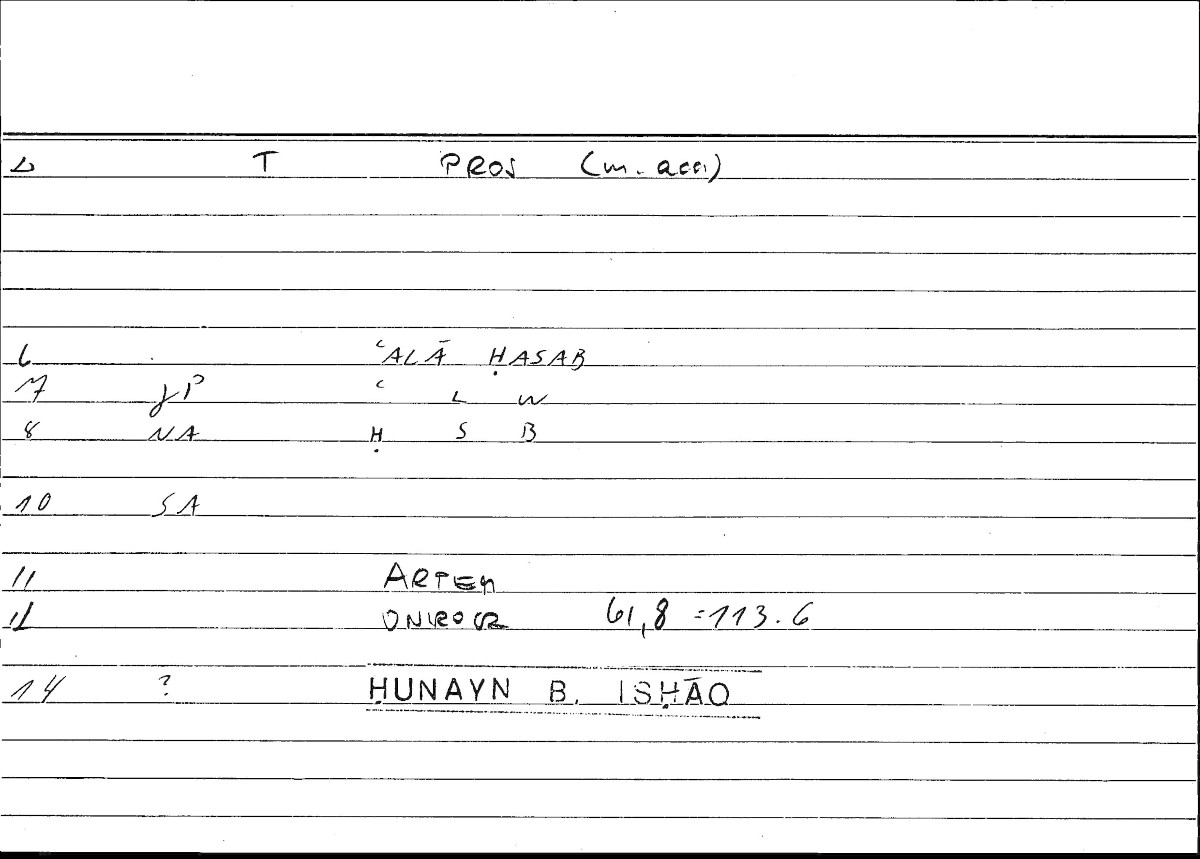 1 T PROS (m. acc)
6 ʿALĀ ḤASAB
7 gP ʿ L W
8 NA Ḥ S B
10 SA
11 ARTEM
12 ONIROCR 61,8 =113.6
14 ? ḤUNAYN B. ISḤĀQ